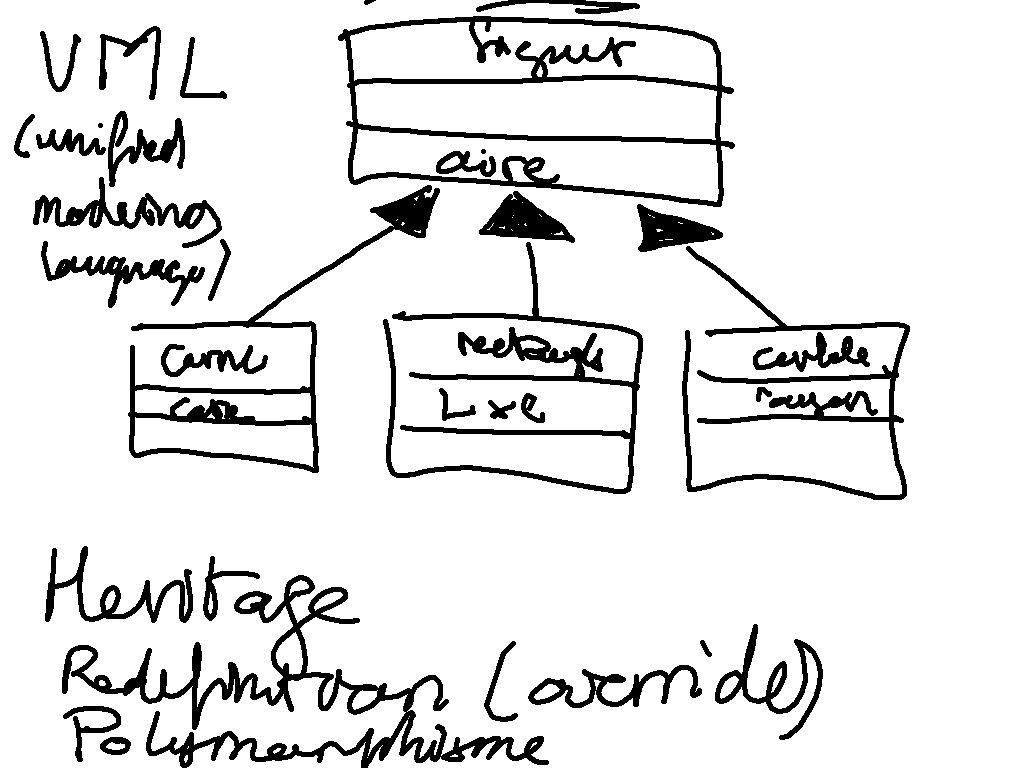 UML
(unified
modeling
language)
figure
aire
carre
cote
rectangle
L x l
cercle
rayon
Heritage
Redefinition (override)
Polymorphisme